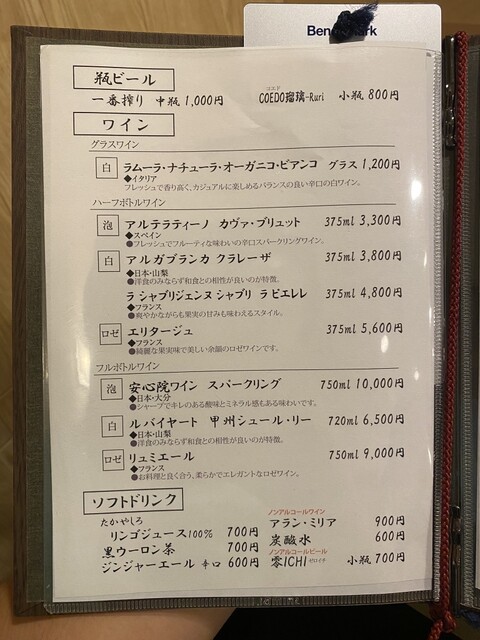 Ben rk
瓶ビール
一番搾り 中瓶 1,000円
コエド
COEDO瑠璃-Ruri 小瓶 800円
ワイン
グラスワイン
白 ラムーラ・ナチューラ・オーガニコ・ビアンコ グラス 1,200円
◆イタリア
フレッシュで香り高く、カジュアルに楽しめるバランスの良い辛口の白ワイン。
ハーフボトルワイン
泡 アルテラティーノ カヴァ・ブリュット 375ml 3,300円
◆スペイン
●フレッシュでフルーティな味わいの辛口スパークリングワイン。
白 アルガブランカ クラレーザ 375ml 3,800円
◆日本・山梨
●洋食のみならず和食との相性が良いのが特徴。
ラ シャブリジェンヌ シャブリ ラ ピエレレ 375ml 4,800円
◆フランス
●爽やかながらも果実の甘みも味わえるスタイル。
ロゼ エリタージュ 375ml 5,600円
◆フランス
●綺麗な果実味で美しい余韻のロゼワインです。
フルボトルワイン
泡 安心院ワイン スパークリング 750ml 10,000円
◆日本・大分
●シャープでキレのある酸味とミネラル感もある味わいです。
白 ルバイヤート 甲州シュール・リー 720ml 6,500円
◆日本・山梨
●洋食のみならず和食との相性が良いのが特徴。
ロゼ リュミエール 750ml 9,000円
◆フランス
●お料理と良く合う、柔らかでエレガントなロゼワイン。
ソフトドリンク
たかやしろ
リンゴジュース100% 700円
黒ウーロン茶 700円
ジンジャーエール 辛口 600円
ノンアルコールワイン
アラン・ミリア 900円
炭酸水 600円
ノンアルコールビール
零ICHI ゼロイチ 小瓶 700円